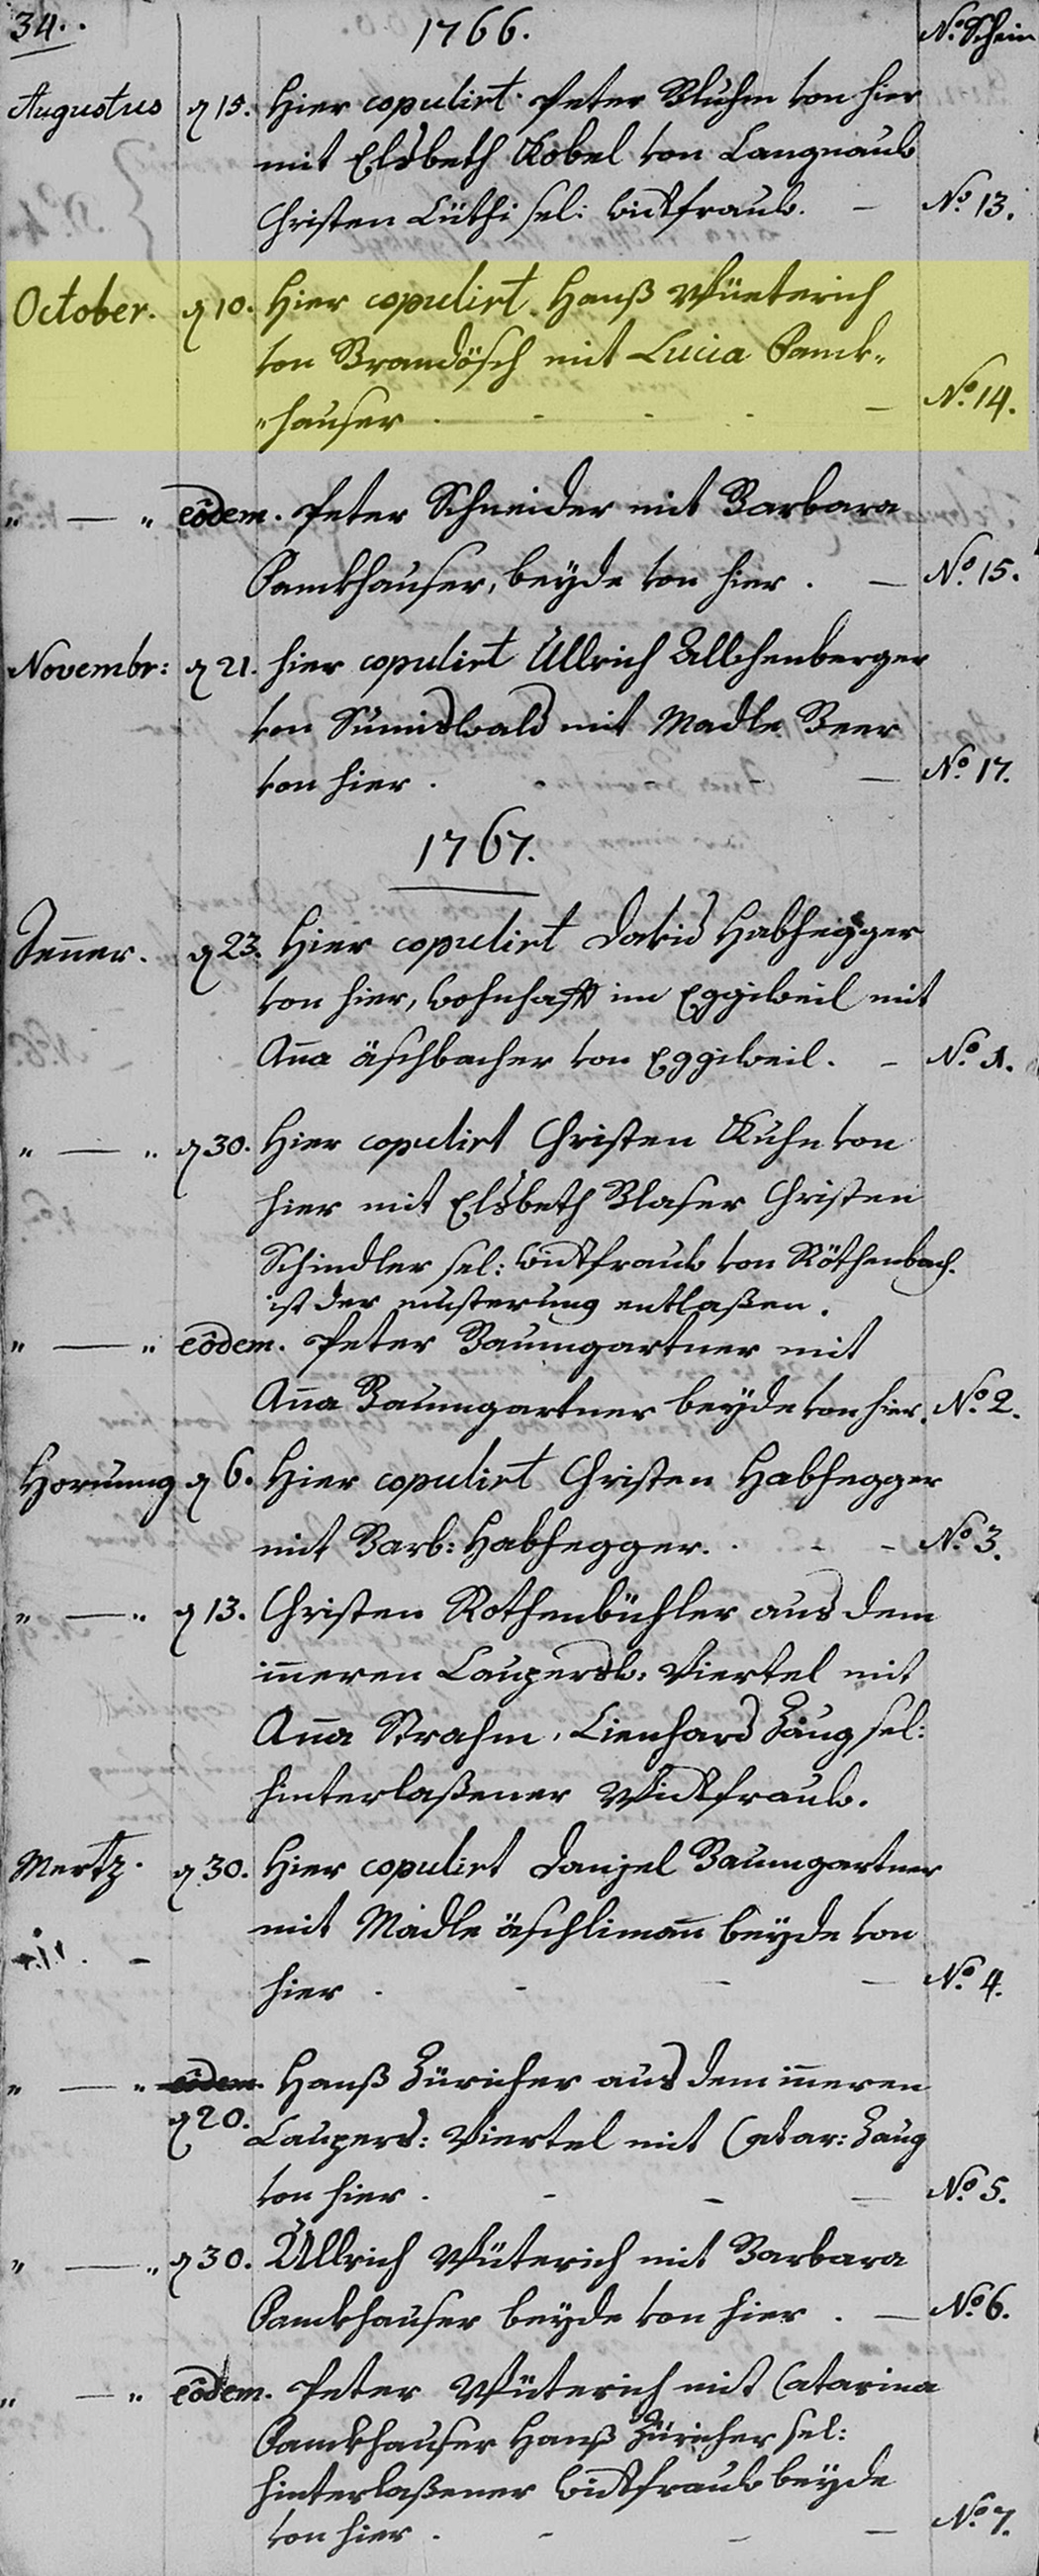 34.. 1766. No. Schein
Augustus d 15. Hier copulirt Peter Bluhm von hier
mit Elsbeth Kobel von Langnauw
Christen Lüthi sel: wittfrauw. — No. 13.
October. d 10. Hier copulirt Hanß Wüeterich
von Brandösch mit Lucia Fanck„
„hauser — No. 14.
„ — „ eôdem. Peter Schneider mit Barbara
Fanckhauser, beÿde von hier. — No. 15.
Novembr: d 21. hier copulirt Üllrich
von Sumiswald mit Madle Beer
von hier. — No. 17.
1767.
Jen̄er. d 23. Hier copulirt David Habhegger
von hier, wohnhafft im Eggiweil mit
An̄a äschbacher von Eggiweil. — No. 1.
„ — „ d 30. Hier copulirt Christen Kuhn von
hier mit Elsbeth Blaser Christen
Schindler sel: wittfrauw von Röthenbach.
ist der musterung entlaßen.
„ — „ eôdem. Peter Baumgartner mit
An̄a Baumgartner beÿde von hier. No. 2.
Hornung d 6. Hier copulirt Christen Habhegger
mit Barb: Habhegger. — No. 3.
„ — „ d 13. Christen Rothenbühler aus dem
in̄eren Laupersw. Viertel mit
An̄a Strahm, Lienhard Zaug sel:
hinterlaßener Wittfrauw.
Mertz. d 30. Hier copulirt Danjel Baumgartner
mit Madle äschliman̄ beÿde von
hier — No. 4.
„ — „ eôdem. Hanß Züricher aus dem in̄eren
d 20. Laupers: Viertel mit Catar: Zaug
von hier. — No. 5.
„ — „ d 30. Üllrich Wüterich mit Barbara
Fanckhauser beÿde von hier. — No 6.
„ — „ eôdem. Peter Wüterich mit Catarina
Fanckhauser Hanß Züricher sel:
hinterlaßener wittfrauw beÿde
von hier. — No. 7.